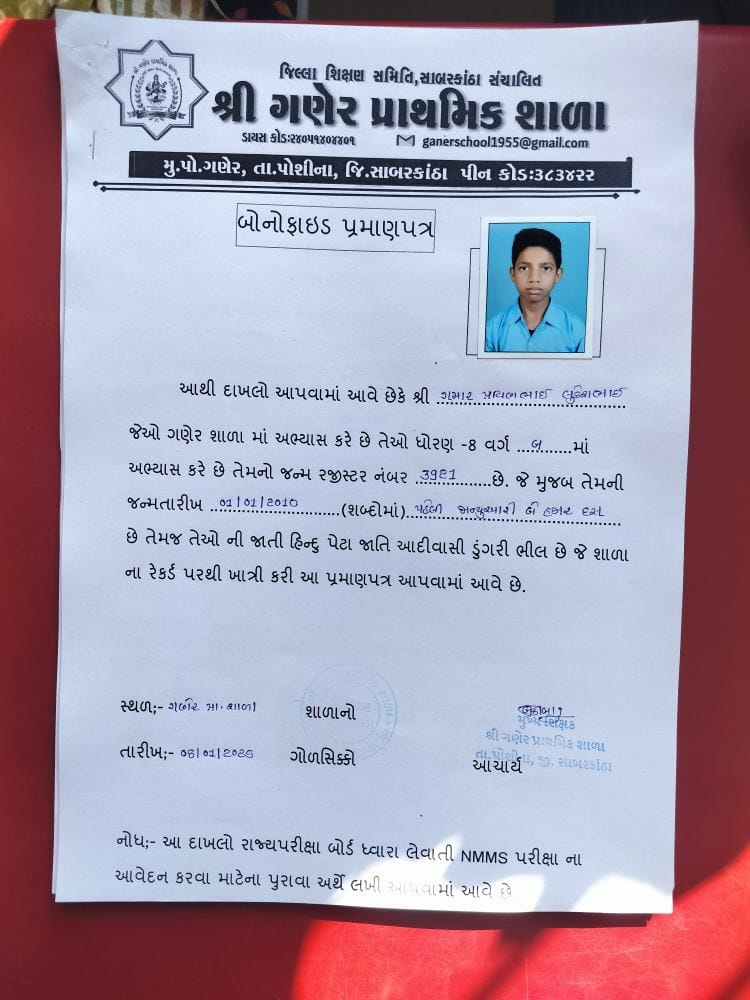 જિલ્લા શિક્ષણ સમિતિ,સાબરકાંઠા સંચાલિત
શ્રી ગણેર પ્રાથમિક શાળા
ડાયસ કોડ:૨૪૦૫૧૪૦૪૪૦૧ ganerschool1955@gmail.com
મુ.પો.ગણેર, તા.પોશીના, જિ.સાબરકાંઠા પીન કોડ:૩૮૩૪૨૨
બોનોફાઇડ પ્રમાણપત્ર
આથી દાખલો આપવામાં આવે છેકે શ્રી ગમાર પ્રવિણભાઈ
જેઓ ગણેર શાળા માં અભ્યાસ કરે છે તેઓ ધોરણ -8 વર્ગ બ માં
અભ્યાસ કરે છે તેમનો જન્મ રજીસ્ટર નંબર 3921 છે. જે મુજબ તેમની
જન્મતારીખ 01/01/2010 (શબ્દોમાં) પહેલી જાન્યુઆરી બે હજાર દસ
છે તેમજ તેઓ ની જાતી હિન્દુ પેટા જાતિ આદીવાસી ડુંગરી ભીલ છે જે શાળા
ના રેકર્ડ પરથી ખાત્રી કરી આ પ્રમાણપત્ર આપવામાં આવે છે.
સ્થળ;- ગણેર પ્રા. શાળા
શાળાનો
મુખ્ય શિક્ષક
શ્રી ગણેર પ્રાથમિક શાળા
તા.પોશીના, જી. સાબરકાંઠા
તારીખ;-
ગોળસિક્કો
આચાર્ય
નોધ;- આ દાખલો રાજ્યપરીક્ષા બોર્ડ ધ્વારા લેવાતી NMMS પરીક્ષા ના
આવેદન કરવા માટેના પુરાવા અર્થે લખી આપવામાં આવે છે